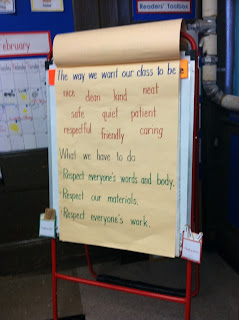 Readers' Toolbox
February
The way we want our class to be
nice clean kind neat
safe quiet patient
respectful friendly caring
What we have to do
- Respect everyone's words and body.
- Respect our materials.
- Respect everyone's work.